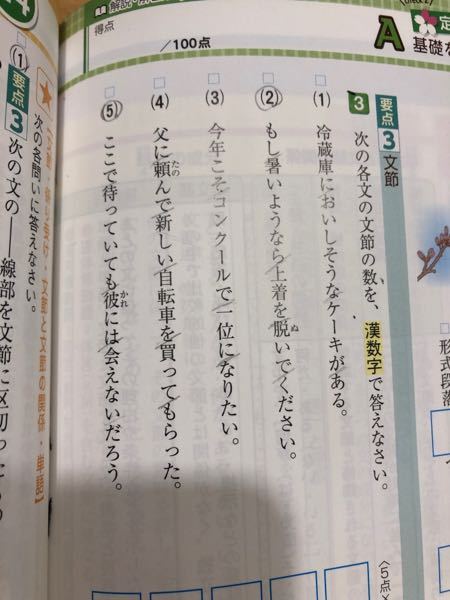 得点
/100点
A
基礎
要点3 文節
3 次の各文の文節の数を、漢数字で答えなさい。
(1) 冷蔵庫においしそうなケーキがある。
(2) もし暑いようなら上着を脱いでください。
(3) 今年こそコンクールで一位になりたい。
(4) 父に頼んで新しい自転車を買ってもらった。
(5) ここで待っていても彼には会えないだろう。
〈5点×
形式段落
次の各問いに答えなさい。
要点3
(1) 次の文の――線部を文節に区切った